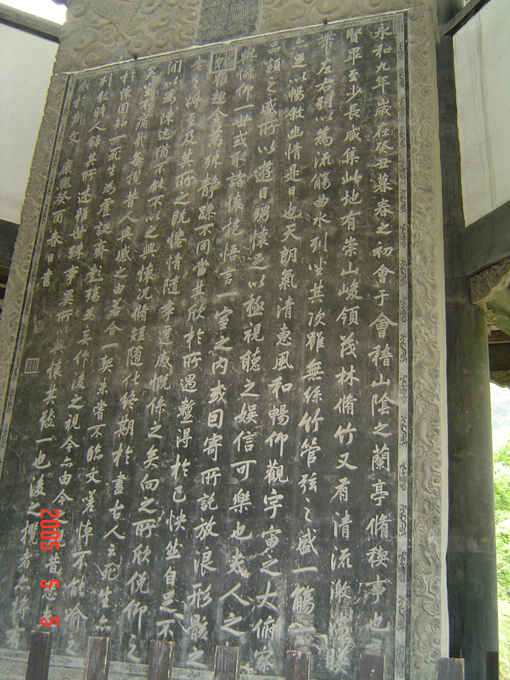 永和九年歲在癸丑暮春之初會于會稽山陰之蘭亭脩稧事也
賢畢至少長咸集此地有崇山峻領茂林脩竹又有清流激湍暎
帶左右引以為流觴曲水列坐其次雖無絲竹管弦之盛一觴一
亦足以暢敘幽情是日也天朗氣清惠風和暢仰觀宇宙之大俯察
品類之盛所以遊目騁懷足以極視聽之娛信可樂也夫人之
與俯仰一世或取諸懷抱悟言一室之內或因寄所託放浪形骸之
雖趣舍萬殊靜躁不同當其欣於所遇蹔得於己快然自足不
老之將至及其所之既惓情隨事遷感慨係之矣向之所欣俛仰之
間以為陳迹猶不能不以之興懷況脩短隨化終期於盡古人云死生亦
矣豈不痛哉每攬昔人興感之由若合一契未嘗不臨文嗟悼不能喻之
於懷固知一死生為虛誕齊彭殤為妄作後之視今亦由今昔悲夫
列敘時人錄其所述雖世殊事異所以興懷其致一也後之攬者亦將有
於斯文 康熙癸酉春日書
2005 5 5